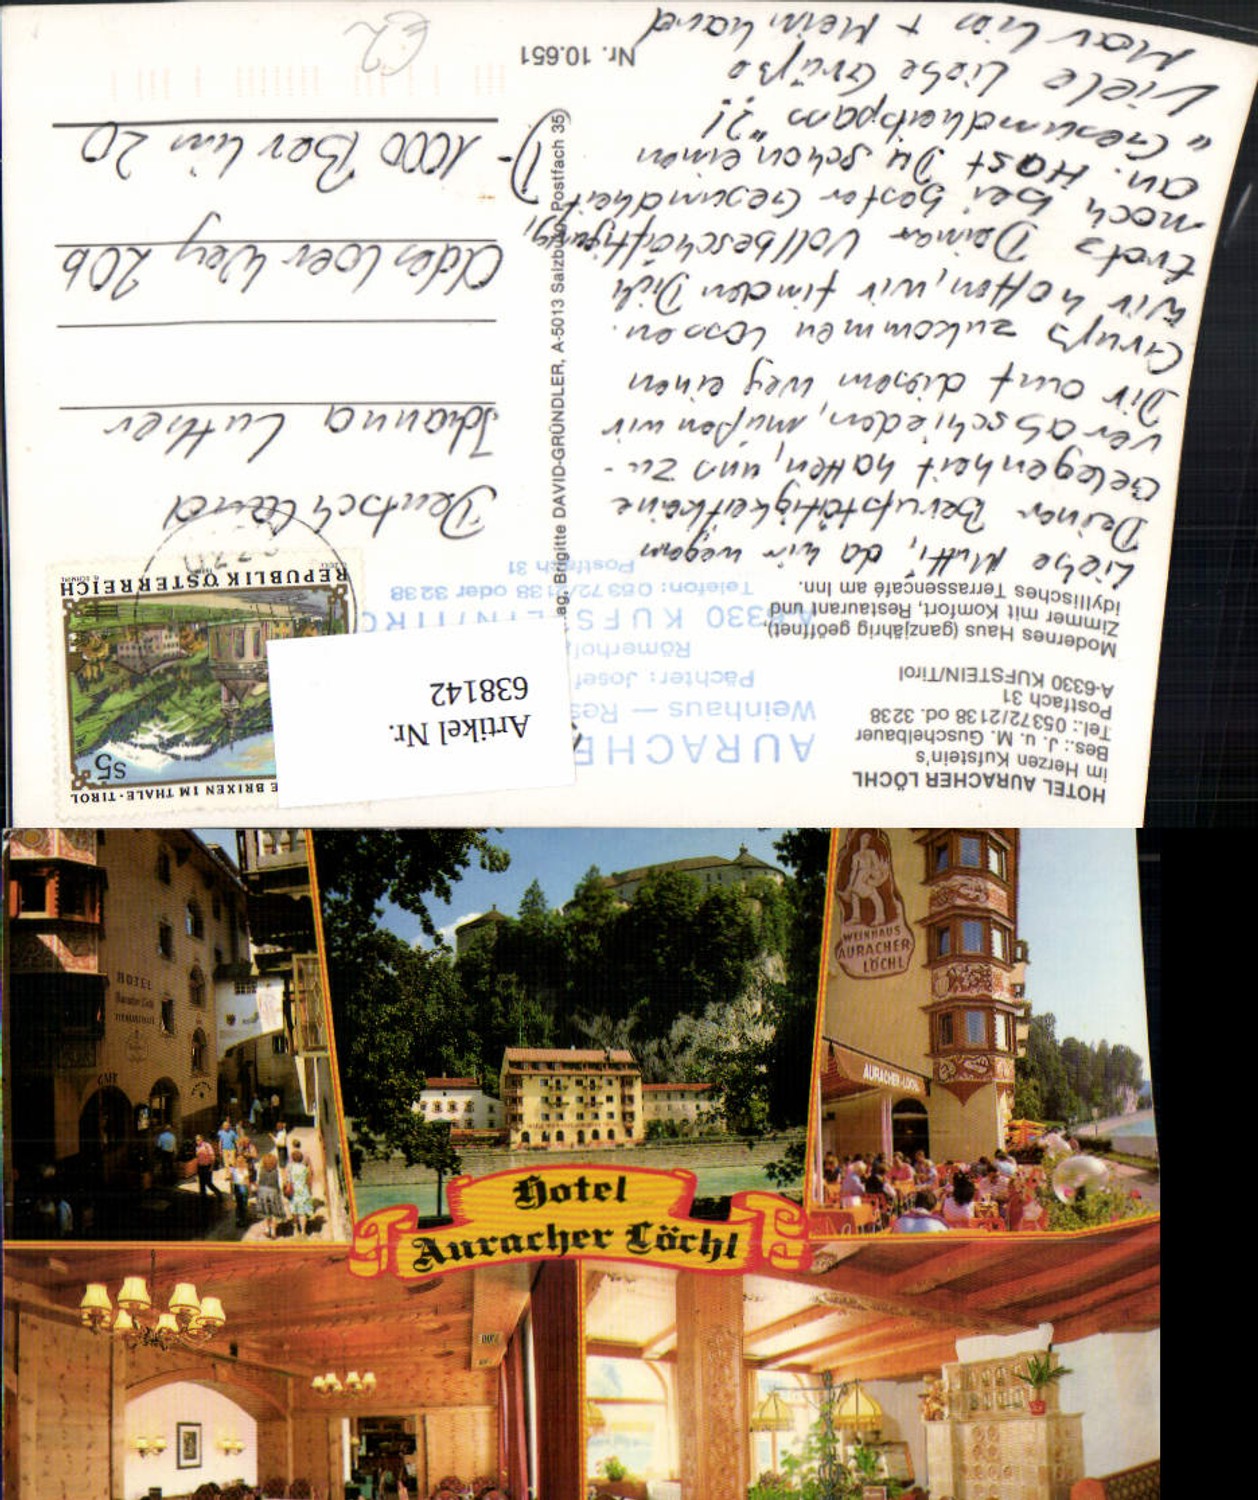 HOTEL AURACHER LÖCHL
im Herzen Kufstein's
Bes.: J. u. M. Guschelbauer
Tel.: 05372/2138 od. 3238
Postfach 31
A-6330 KUFSTEIN/Tirol
Modernes Haus (ganzjährig geöffnet),
Zimmer mit Komfort, Restaurant und
idyllisches Terrassencafé am Inn.
Liebe Mutti, da wir wegen
Deiner Berufstätigkeit keine
Gelegenheit hatten, uns zu-
verabschieden, müßen wir
Dir auf diesem Weg einen
Gruß zukommen lassen.
Wir hoffen, wir finden Dich
trotz Deiner Vollbeschäftigung,
noch bei bester Gesundheit
an. Hast Du schon einen
"Gesundheitspass"?!
Viele Liebe Grüße
Marlin + Meinhard
AURACHE
Weinhaus — Res
Pächter: Josef
Römerhof
A-6330 KUFSTEIN/TIRO
Telefon: 05372/2138 oder 3238
Postfach 31
Artikel Nr.
638142
E BRIXEN IM THALE-TIROL
S5
REPUBLIK ÖSTERREICH
ag, Brigitte DAVID-GRÜNDLER, A-5013 Salzburg, Postfach 35
Deutschland
Johanna Luther
Adersloer Weg 20b
D-1000 Berlin 20
Nr. 10.651
€2
HOTEL
Auracher Löchl
WEINHAUS
AURACHER
LÖCHL
AURACHER-LÖCHL
Hotel
Auracher Löchl